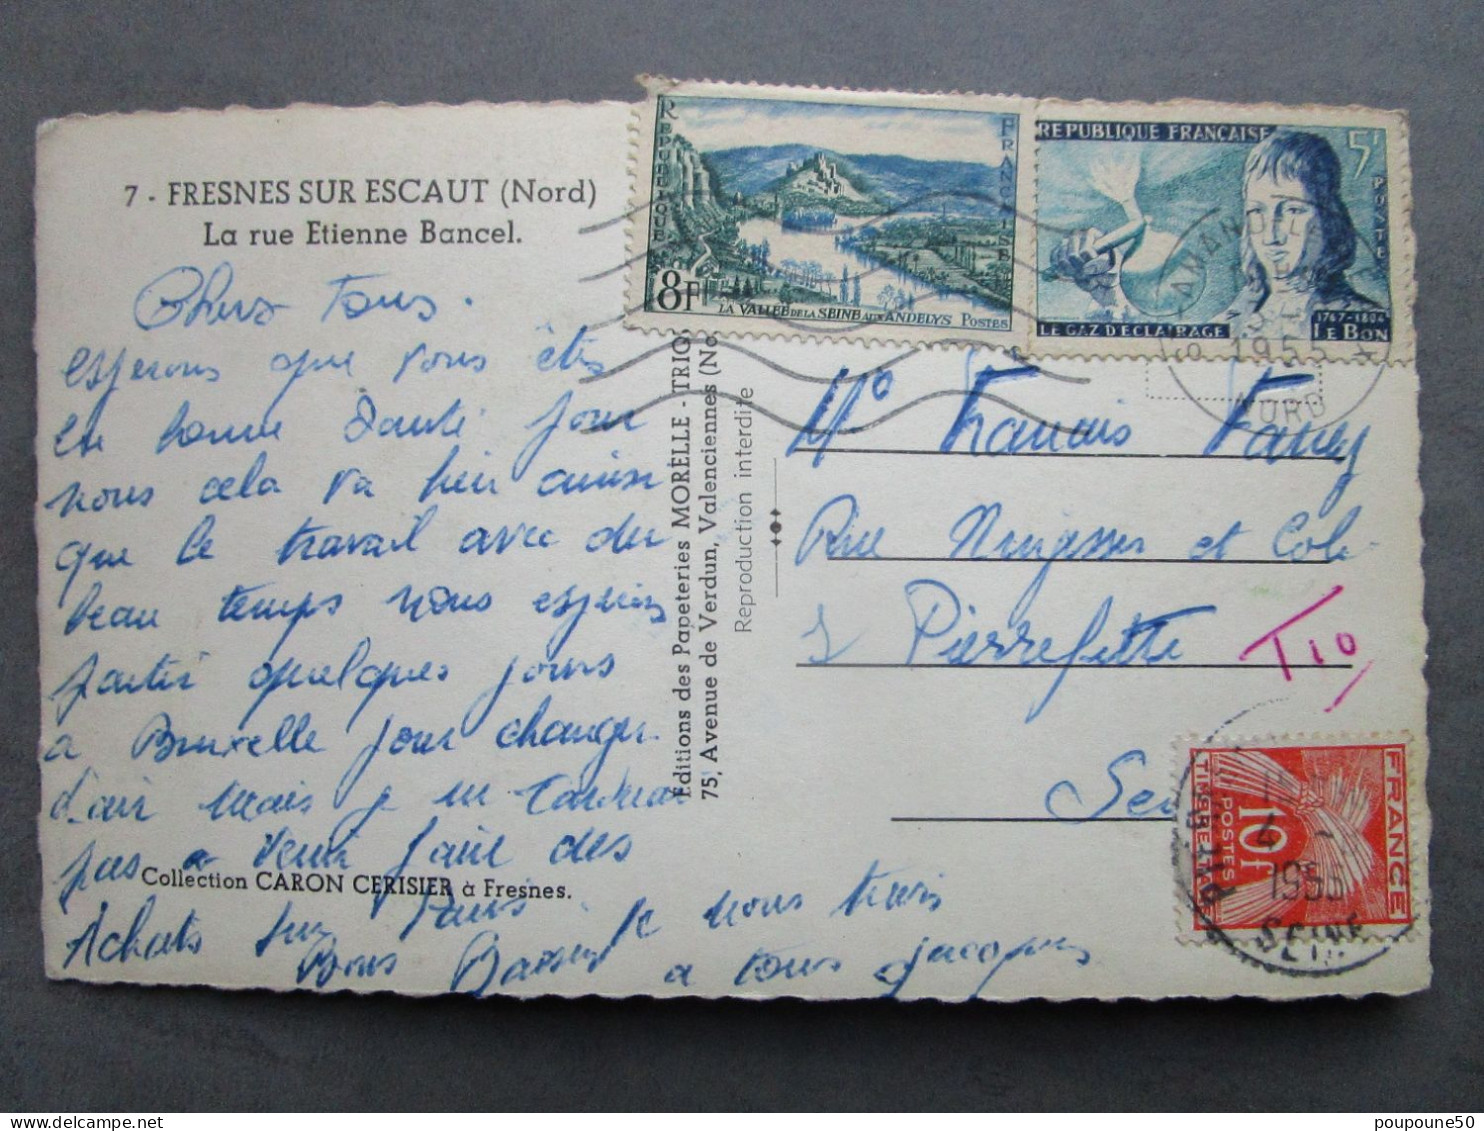 7 - FRESNES SUR ESCAUT (Nord)
La rue Etienne Bancel.
Chers Tous.
esperons que vous êtes
en bonne Santé pour
nous cela va bien ainsi
que le travail avec du
beau temps nous espérons
partir quelques jours
a Bruxelle pour changer
d'air Mais je ne Tarderai
pas a Venir faire des
Achats sur Paris je nous
Bons Baisers a tous Jacques
Collection CARON CERISIER à Fresnes.
Editions des Papeteries MORELLE - TRIO
75, Avenue de Verdun, Valenciennes (No
Reproduction interdite
REPUBLIQUE FRANÇAISE
8F
LA VALLÉE DE LA SEINE AUX ANDELYS POSTES
REPUBLIQUE FRANÇAISE
5F
POSTE
LE GAZ D'ECLAIRAGE
1767-1804
LE BON
ST AMAND LES
1955
NORD
Mr Francois
Rue Nungesser et Coli
Pierrefitte
T 10
Sei
FRANCE
10F
POSTES
TIMBRE TAXE
4
1955
SEINE
poupoune50